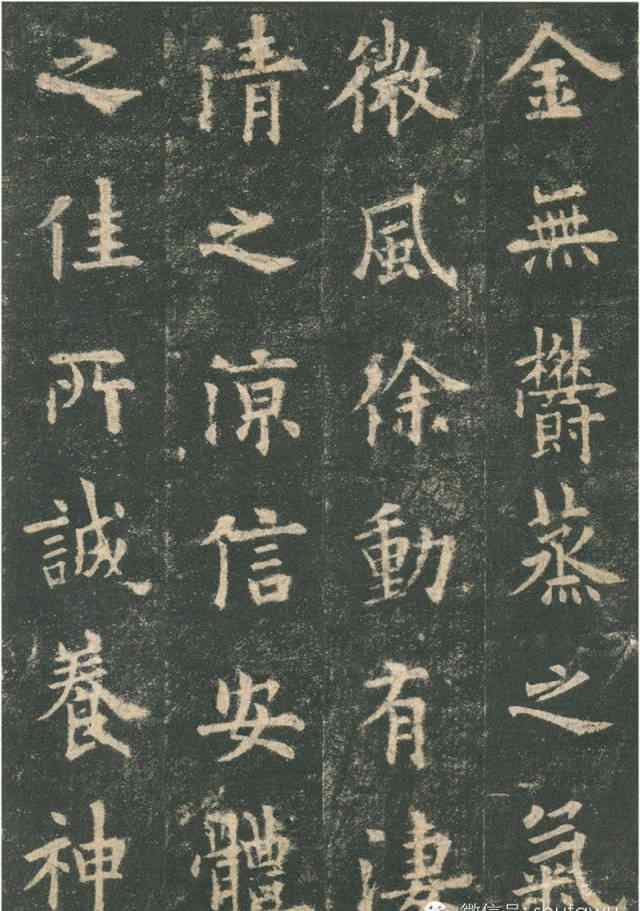 金無欝蒸之氣
微風徐動有凄
清之涼信安體
之佳所誠養神
微信号: shufawu